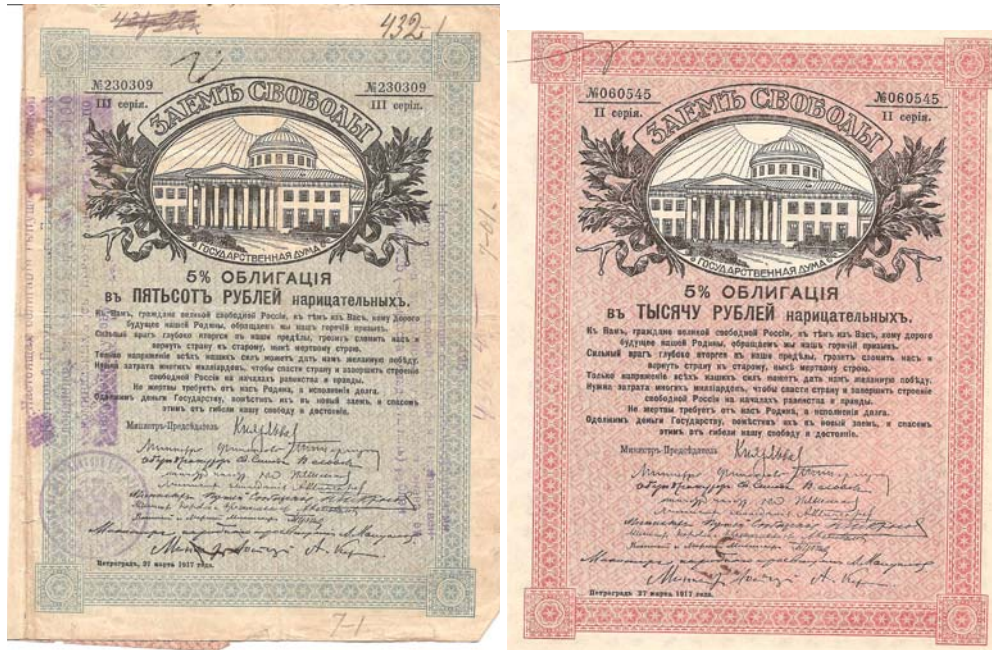 432-1
№230309 №230309
III серія. III серія.
ЗАЕМЪ СВОБОДЫ
ГОСУДАРСТВЕННАЯ ДУМА
5% ОБЛИГАЦІЯ
въ ПЯТЬСОТЪ РУБЛЕЙ нарицательныхъ.
Къ Вамъ, граждане великой свободной Россіи, къ тѣмъ изъ Васъ, кому дорого
будущее нашей Родины, обращаемъ мы нашъ горячій призывъ.
Сильный врагъ глубоко вторгся въ наши предѣлы, грозитъ сломить насъ и
вернуть страну къ старому, нынѣ мертвому строю.
Только напряженіе всѣхъ нашихъ силъ можетъ дать намъ желанную побѣду.
Нужна затрата многихъ милліардовъ, чтобы спасти страну и завершить строеніе
свободной Россіи на началахъ равенства и правды.
Не жертвы требуетъ отъ насъ Родина, а исполненія долга.
Одолжимъ деньги Государству, помѣстивъ ихъ въ новый заемъ, и спасемъ
этимъ отъ гибели нашу свободу и достояніе.
Министръ-Предсѣдатель Кн Львов
Министръ Финансовъ
Оберъ Прокуроръ Св. Синода В Львовъ
Министръ народнаго просвѣщенія А. Мануйловъ
Министр Юстиціи А. Кер
Петроградъ, 27 марта 1917 года.
7-1
№060545 №060545
II серія. II серія.
ЗАЕМЪ СВОБОДЫ
ГОСУДАРСТВЕННАЯ ДУМА
5% ОБЛИГАЦІЯ
въ ТЫСЯЧУ РУБЛЕЙ нарицательныхъ.
Къ Вамъ, граждане великой свободной Россіи, къ тѣмъ изъ Васъ, кому дорого
будущее нашей Родины, обращаемъ мы нашъ горячій призывъ.
Сильный врагъ глубоко вторгся въ наши предѣлы, грозитъ сломить насъ и
вернуть страну къ старому, нынѣ мертвому строю.
Только напряженіе всѣхъ нашихъ силъ можетъ дать намъ желанную побѣду.
Нужна затрата многихъ милліардовъ, чтобы спасти страну и завершить строеніе
свободной Россіи на началахъ равенства и правды.
Не жертвы требуетъ отъ насъ Родина, а исполненія долга.
Одолжимъ деньги Государству, помѣстивъ ихъ въ новый заемъ, и спасемъ
этимъ отъ гибели нашу свободу и достояніе.
Министръ-Предсѣдатель Кн Львов
Министръ Финансовъ
Оберъ Прокуроръ Св. Синода В Львовъ
Министръ народнаго просвѣщенія А. Мануйловъ
Министр Юстиціи А. Кер
Петроградъ 27 марта 1917 года.